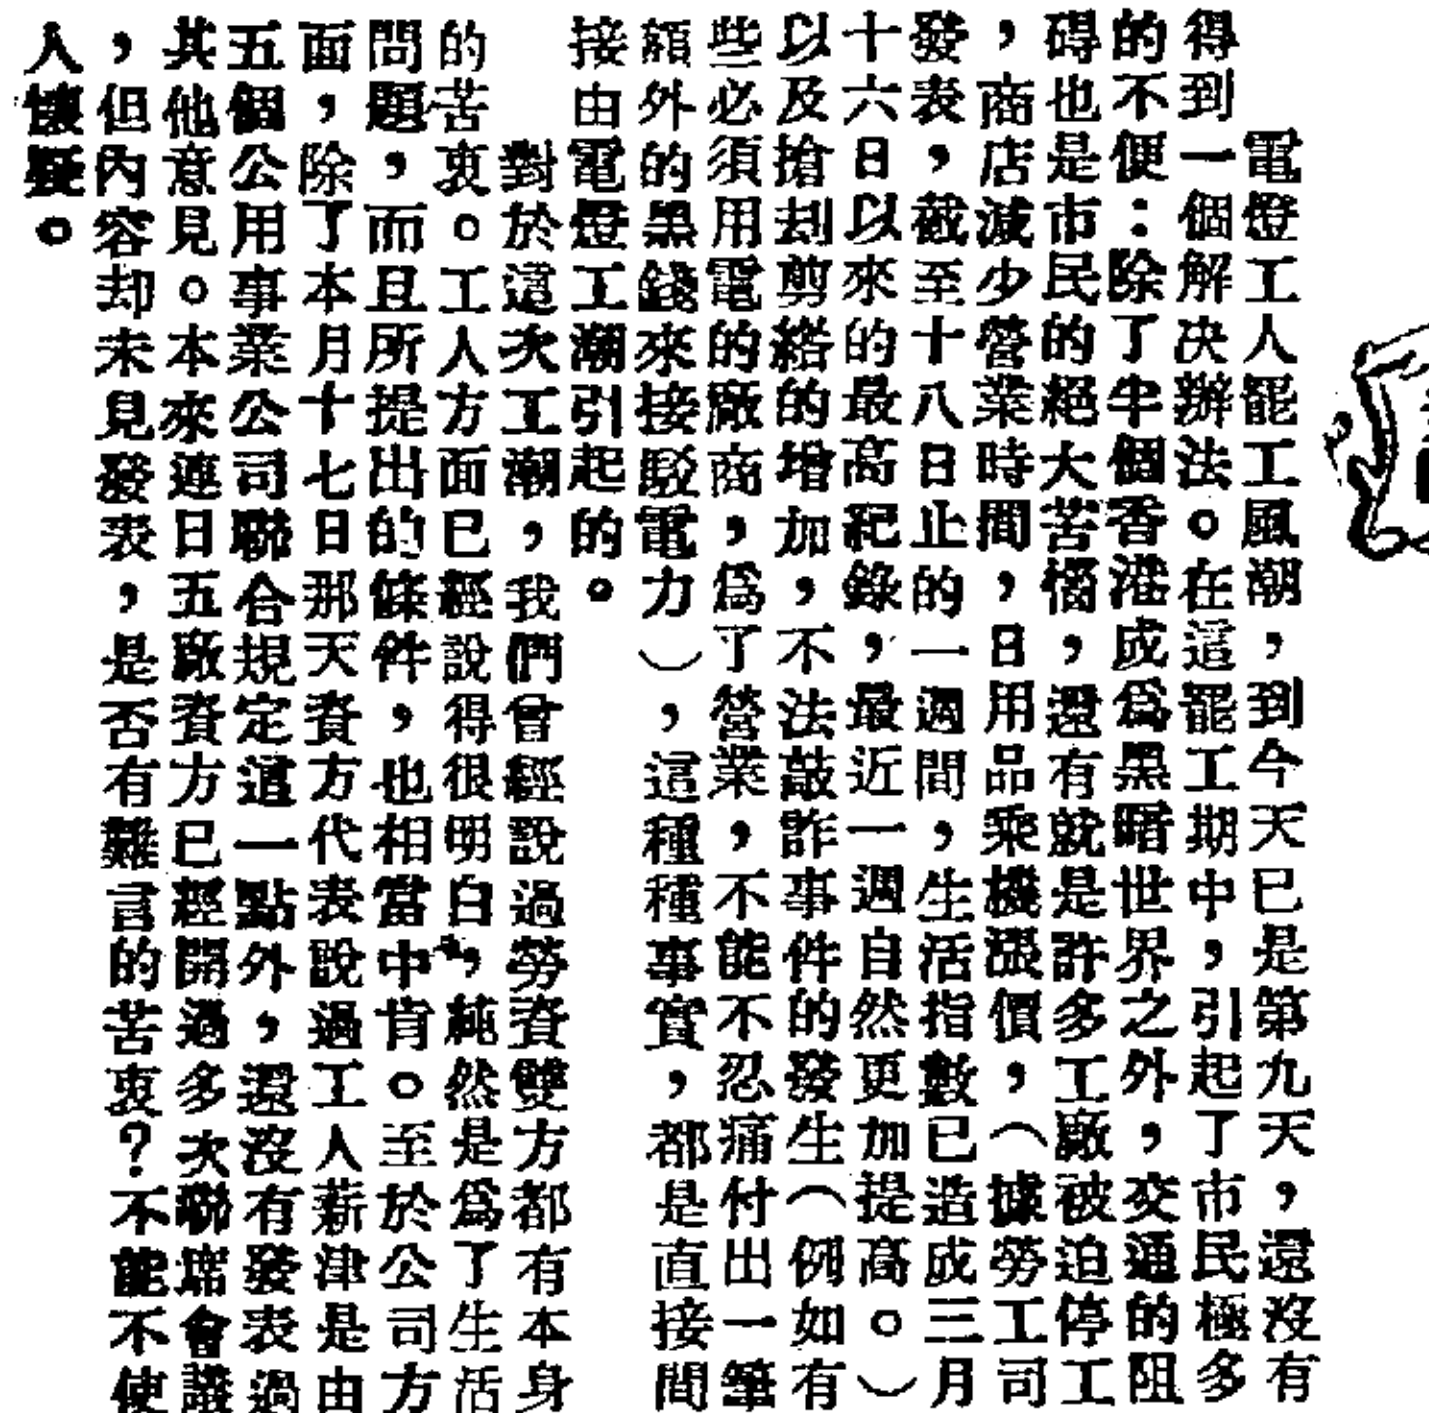 電燈工人罷工風潮，到今天已是第九天，還沒有
得到一個解决辦法。在這罷工期中，引起了市民極多
的不便：除了半個香港成爲黑暗世界之外，交通的阻
碍也是市民的絕大苦惱，還有就是許多工廠被迫停工
，商店減少營業時間，日用品乘機漲價，（據勞工司
發表，截至十八日止的一週間，生活指數已造成三月
十六日以來的最高紀錄，最近一週自然更加提高。）
以及搶刦剪綹的增加，不法敲詐事件的發生（例如有
些必須用電的廠商，爲了營業，不能不忍痛付出一筆
額外的黑錢來接駁電力），這種種事實，都是直接間
接由電燈工潮引起的。
對於這次工潮，我們曾經說過勞資雙方都有本身
的苦衷。工人方面已經說得很明白，純然是爲了生活
問題，而且所提出的條件，也相當中肯。至於公司方
面，除了本月十七日那天資方代表說過工人薪津是由
五個公用事業公司聯合規定這一點外，還沒有發表過
其他意見。本來連日五廠資方已經開過多次聯席會議
，但內容却未見發表，是否有難言的苦衷？不能不使
人懷疑。